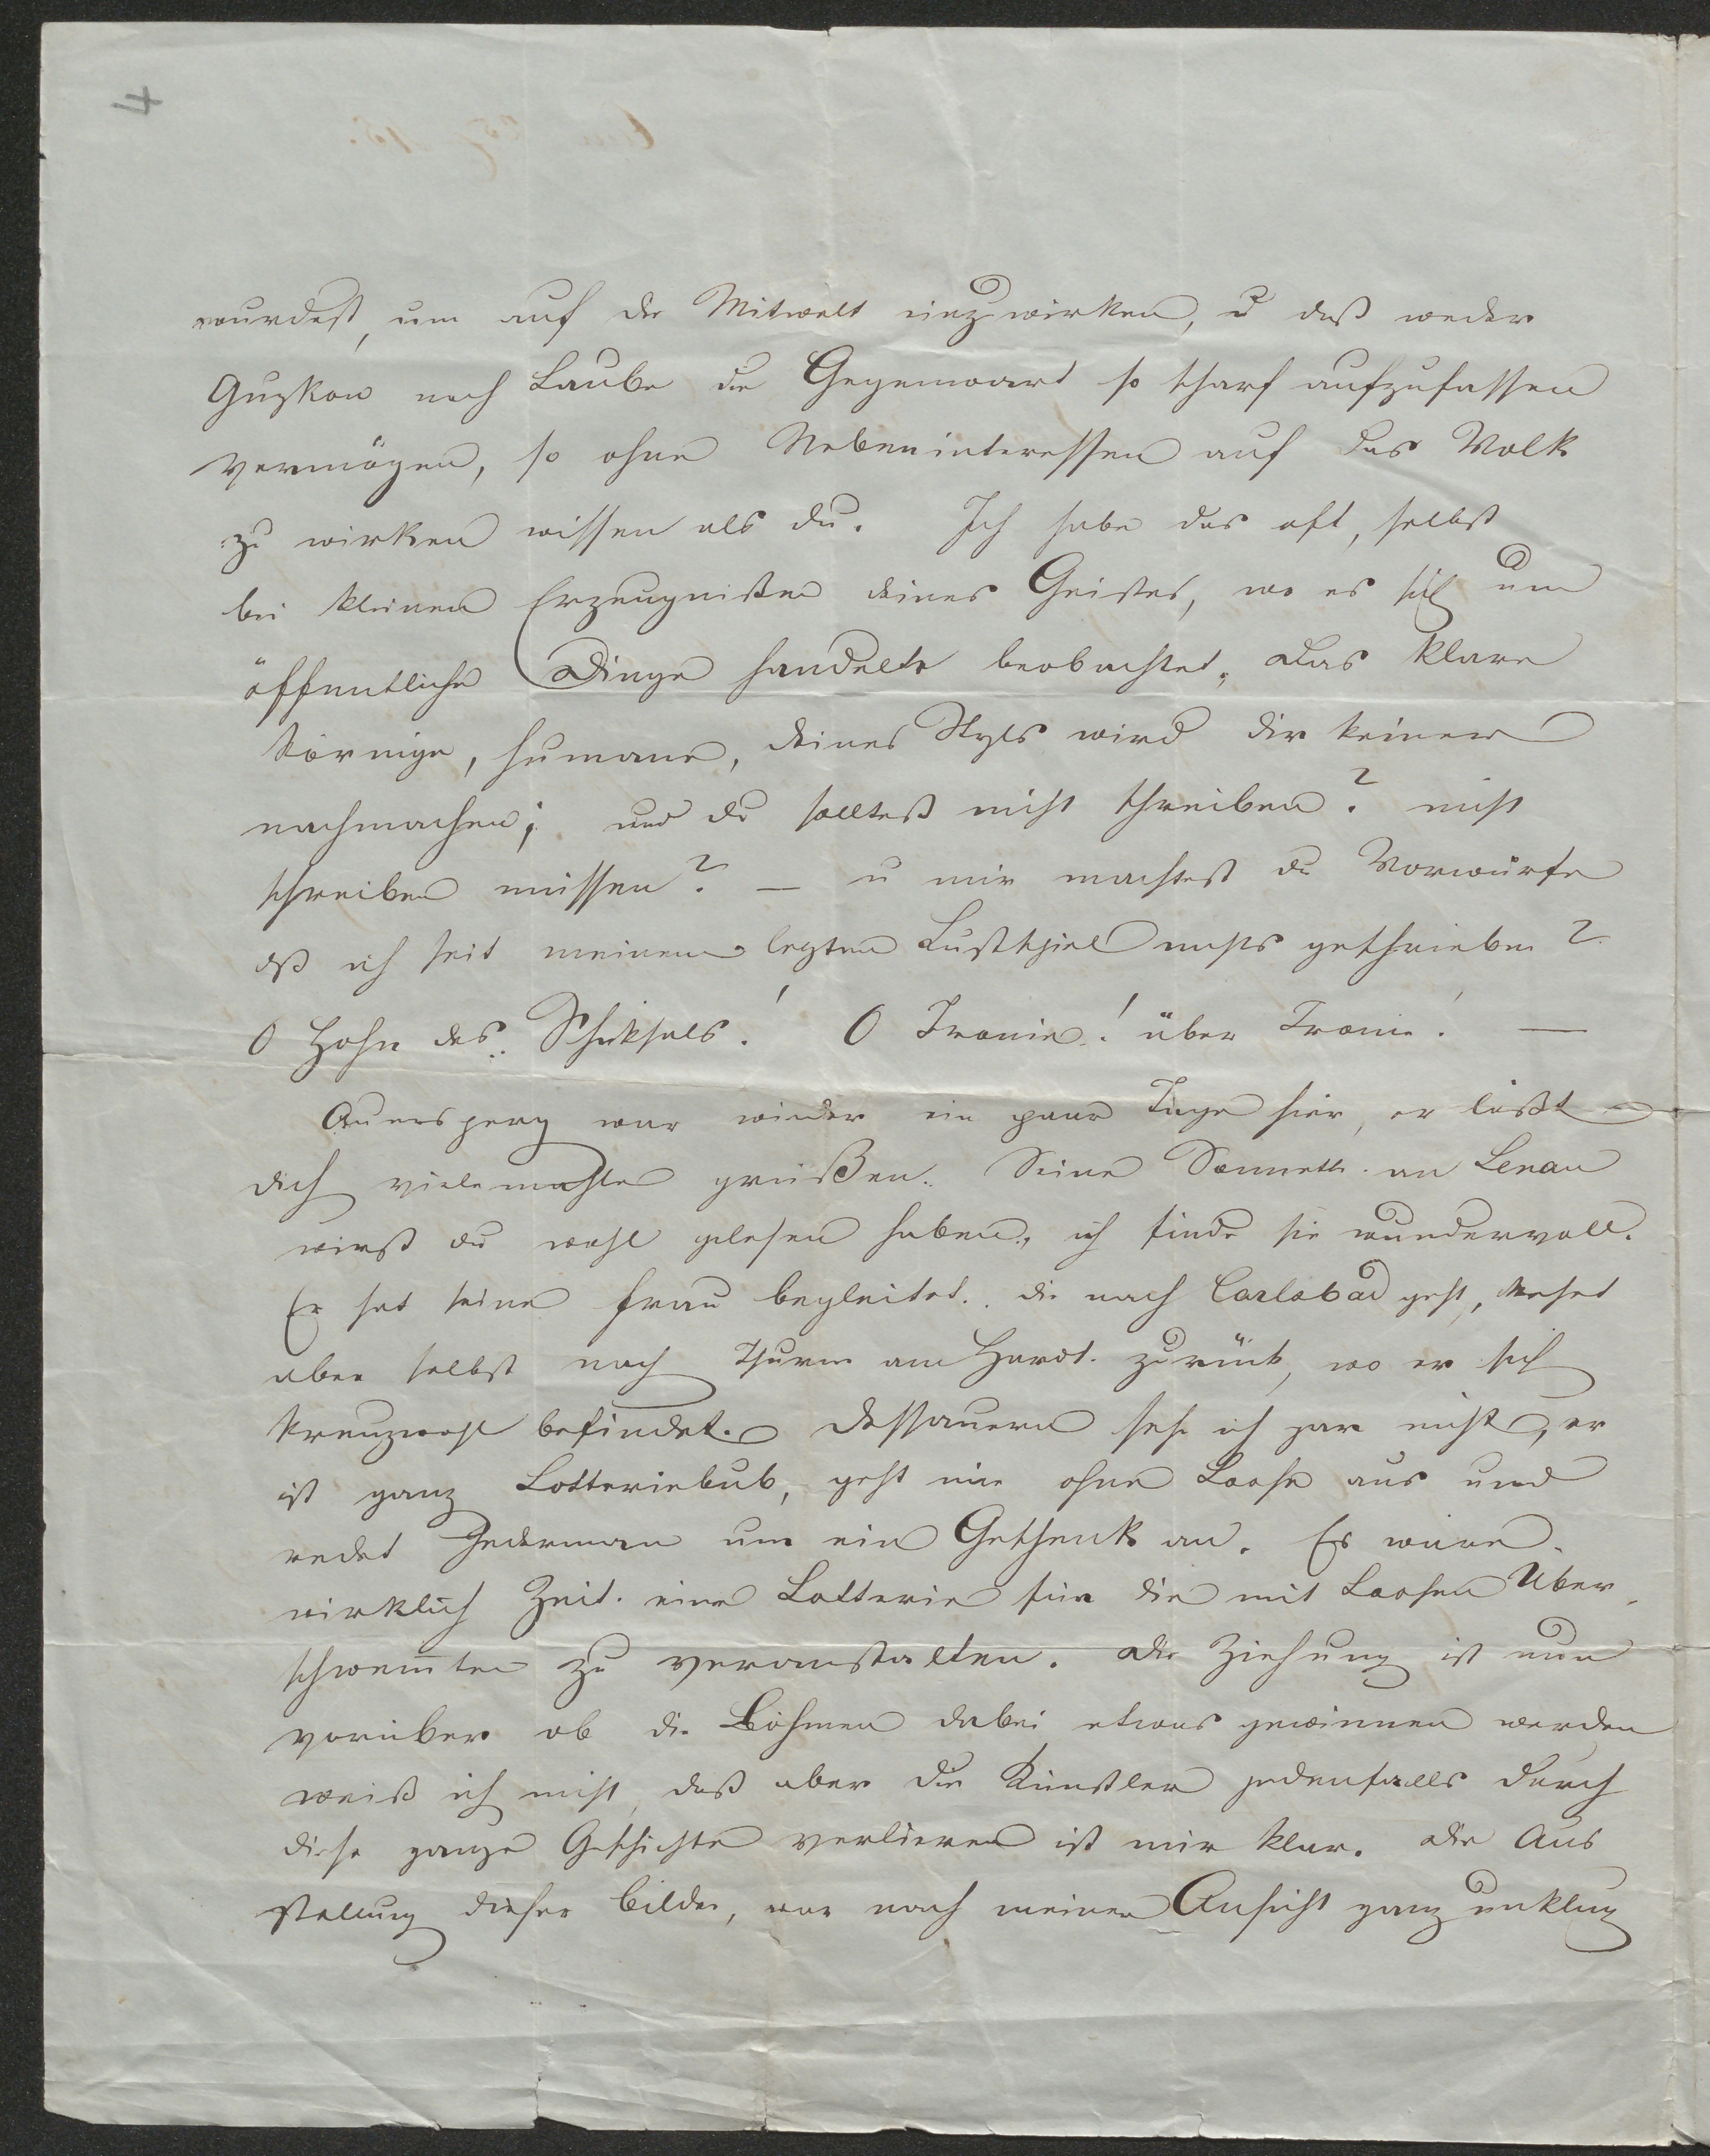 4
wurdest, um auf die Mitwelt einzuwirken, u daß weder
Guzkow noch Laube die Gegenwart so scharf aufzufassen
vermögen, so ohne Nebeninteressen auf das Volk
zu wirken wissen als du. Ich habe das oft, selbst
bei kleinen Erzeugnißen deines Geistes, wo es sich um
öffentliche Dinge handelte beobachtet, das klare
körnige, humane, deines Styls wird dir keiner
nachmachen; und du solltest nicht schreiben? nicht
schreiben müssen? — u mir machtest du Vorwürfe
dß ich seit meinem lezten Lustspiel nichts geschrieben?
O Hohn des Schiksals! O Ironie! über Ironie! —
Auersperg war wieder ein paar Tage hier, er läßt
dich vielemahle grüßen. Seine Sonnette an Lenau
wirst du wohl gelesen haben, ich finde sie wundervoll.
Er hat seine Frau begleitet. die nach Carlsbad geht, kehrt
aber selbst nach Thurn am Hardt. zurück, wo er sich
kreuzwohl befindet. Dessauern seh ich gar nicht, er
ist ganz Lotteriebub, geht nie ohne Loose aus und
redet Jederman um ein Geschenk an. Es wäre
wirklich Zeit. eine Lotterie für die mit Loosen Über-
schwem̄ten zu veranstalten. Die Ziehung ist nun
vorüber ob die Böhmen dabei etwas gewinnen werden
weiß ich nicht, daß aber die Künstler jedenfalls durch
diese ganze Geschichte verlieren ist mir klar. Die Aus
stellung dieser Bilder, war nach meiner Ansicht ganz unklug